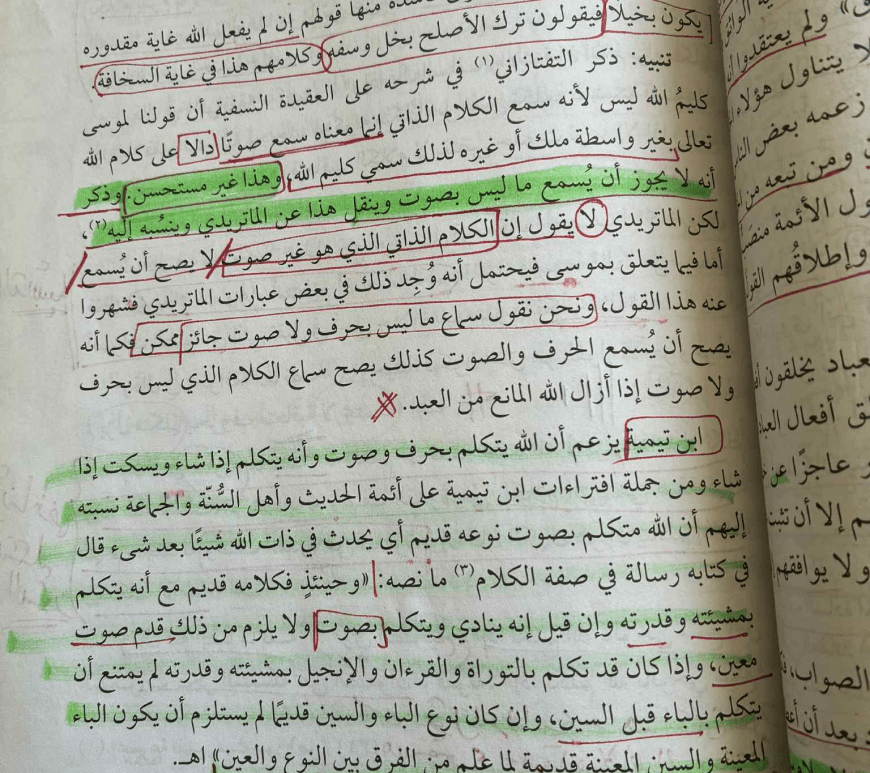 منها قولهم إن لم يفعل الله غاية مقدوره
يكون بخيلا فيقولون ترك الأصلح بخل وسفه وكلامهم هذا في غاية السخافة.
تنبيه: ذكر التفتازاني (١) في شرحه على العقيدة النسفية أن قولنا لموسى
كليمُ الله ليس لأنه سمع الكلام الذاتي إنما معناه سمع صوتًا دالا على كلام الله
تعالى بغير واسطة ملك أو غيره لذلك سمي كليم الله، وهذا غير مستحسن. وذكر
أنه لا يجوز أن يُسمع ما ليس بصوت وينقل هذا عن الماتريدي وينسُبه إليه (٢)،
لكن الماتريدي لا يقول إن الكلام الذاتي الذي هو غير صوت لا يصح أن يُسمع
أما فيما يتعلق بموسى فيحتمل أنه وُجِد ذلك في بعض عبارات الماتريدي فشهروا
عنه هذا القول، ونحن نقول سماع ما ليس بحرف ولا صوت جائز ممكن فكما أنه
يصح أن يُسمع الحرف والصوت كذلك يصح سماع الكلام الذي ليس بحرف
ولا صوت إذا أزال الله المانع من العبد.
ابن تيمية يزعم أن الله يتكلم بحرف وصوت وأنه يتكلم إذا شاء ويسكت إذا
شاء ومن جملة افتراءات ابن تيمية على أئمة الحديث وأهل السُّنّة والجماعة نسبته
إليهم أن الله متكلم بصوت نوعه قديم أي يحدث في ذات الله شيئًا بعد شىء قال
في كتابه رسالة في صفة الكلام (٣) ما نصه: «وحينئذٍ فكلامه قديم مع أنه يتكلم
بمشيئته وقدرته وإن قيل إنه ينادي ويتكلم بصوت ولا يلزم من ذلك قدم صوت
معين، وإذا كان قد تكلم بالتوراة والقرءان والإنجيل بمشيئته وقدرته لم يمتنع أن
يتكلم بالباء قبل السين، وإن كان نوع الباء والسين قديمًا لم يستلزم أن يكون الباء
المعينة والسين المعينة قديمة لما علم من الفرق بين النوع والعين» اهـ.
ولم يعتقدوا
لا يتناول هؤلاء
زعمه بعض
ومن تبعه من
الأئمة
وإطلاقُهم
يخلقون
أفعال
عاجزًا
إلا أن
ولا يوافقهم
الصواب،
بعد أن